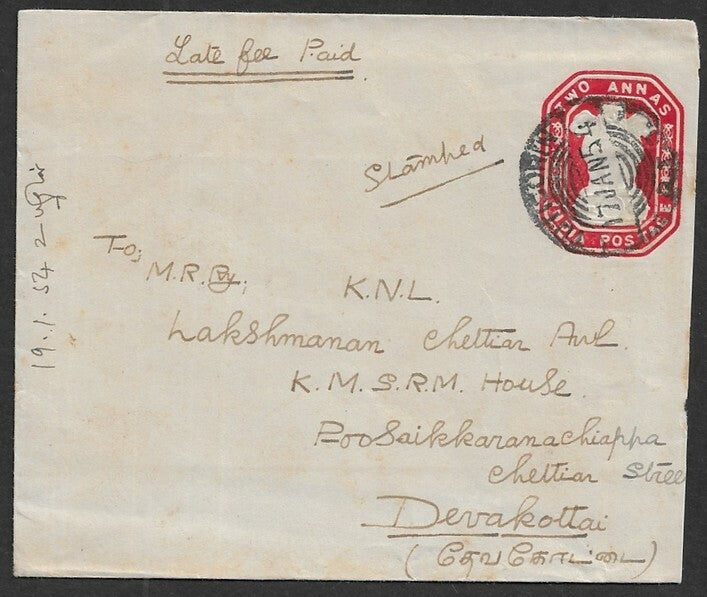 Late fee Paid
TWO ANNAS
INDIA POSTAGE
17 JAN 54
Stamped
To,
M.R.Ry. K.N.L.
Lakshmanan Chettiar Avl.
K.M.S.R.M. House
PooSaikkaranachiappa
Chettiar Stree
Devakottai
(தேவகோட்டை)
19.1.54